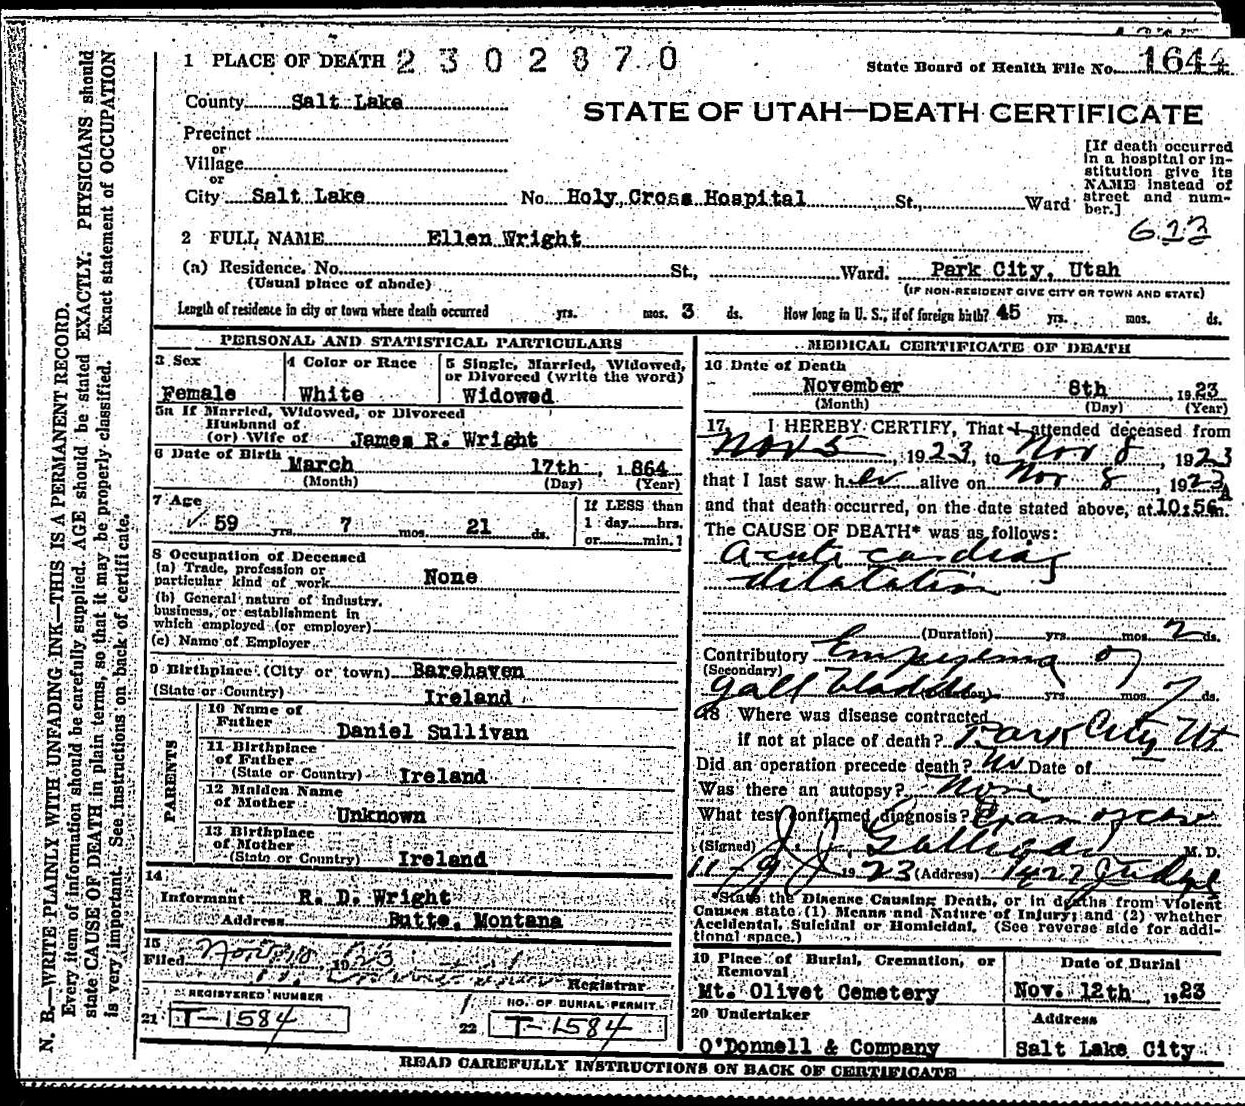 1 PLACE OF DEATH 2302870
State Board of Health File No. 1644
County Salt Lake
STATE OF UTAH—DEATH CERTIFICATE
Precinct
or
Village
or
City Salt Lake No. Holy Cross Hospital St., Ward
[If death occurred
in a hospital or in-
stitution give its
NAME instead of
street and num-
ber.]
623
2 FULL NAME Ellen Wright
(a) Residence. No. St., Ward. Park City, Utah
(Usual place of abode) (IF NON-RESIDENT GIVE CITY OR TOWN AND STATE)
Length of residence in city or town where death occurred yrs. mos. 3 ds. How long in U. S., if of foreign birth? 45 yrs. mos. ds.
PERSONAL AND STATISTICAL PARTICULARS
3 Sex
Female
4 Color or Race
White
5 Single, Married, Widowed,
or Divorced (write the word)
Widowed
5a If Married, Widowed, or Divorced
Husband of
(or) Wife of James R. Wright
6 Date of Birth
March 17th, 1864
(Month) (Day) (Year)
7 Age
59 yrs. 7 mos. 21 ds.
If LESS than
1 day hrs.
or min.?
8 Occupation of Deceased
(a) Trade, profession or
particular kind of work None
(b) General nature of industry,
business, or establishment in
which employed (or employer)
(c) Name of Employer
9 Birthplace (City or town) Barehaven
(State or Country) Ireland
PARENTS
10 Name of
Father Daniel Sullivan
11 Birthplace
of Father
(State or Country) Ireland
12 Maiden Name
of Mother Unknown
13 Birthplace
of Mother
(State or Country) Ireland
14
Informant R. D. Wright
Address Butte, Montana
15
Filed 1923
Registrar
REGISTERED NUMBER
21 T-1584
NO. OF BURIAL PERMIT
22 T-1584
MEDICAL CERTIFICATE OF DEATH
16 Date of Death
November 8th 1923
(Month) (Day) (Year)
17. I HEREBY CERTIFY, That I attended deceased from
Nov 5, 1923, to Nov 8, 1923
that I last saw her alive on Nov 8, 1923
and that death occurred, on the date stated above, at 10:56 A m.
The CAUSE OF DEATH* was as follows:
Acute cardiac
dilatation
(Duration) yrs. mos. 2 ds.
Contributory Empyema of
(Secondary)
gall bladder (Duration) yrs. mos. 7 ds.
18 Where was disease contracted
if not at place of death? Park City Ut
Did an operation precede death? No Date of
Was there an autopsy? None
What test confirmed diagnosis?
(Signed) J. J. Galligan M. D.
11/9/1923 (Address) Judge
*State the Disease Causing Death, or in deaths from Violent
Causes state (1) Means and Nature of Injury; and (2) whether
Accidental, Suicidal or Homicidal. (See reverse side for addi-
tional space.)
19 Place of Burial, Cremation, or
Removal
Mt. Olivet Cemetery
Date of Burial
Nov. 12th 1923
20 Undertaker
O'Donnell & Company
Address
Salt Lake City
READ CAREFULLY INSTRUCTIONS ON BACK OF CERTIFICATE
N. B.—WRITE PLAINLY WITH UNFADING INK—THIS IS A PERMANENT RECORD.
Every item of information should be carefully supplied. AGE should be stated EXACTLY. PHYSICIANS should
state CAUSE OF DEATH in plain terms, so that it may be properly classified. Exact statement of OCCUPATION
is very important. See instructions on back of certificate.